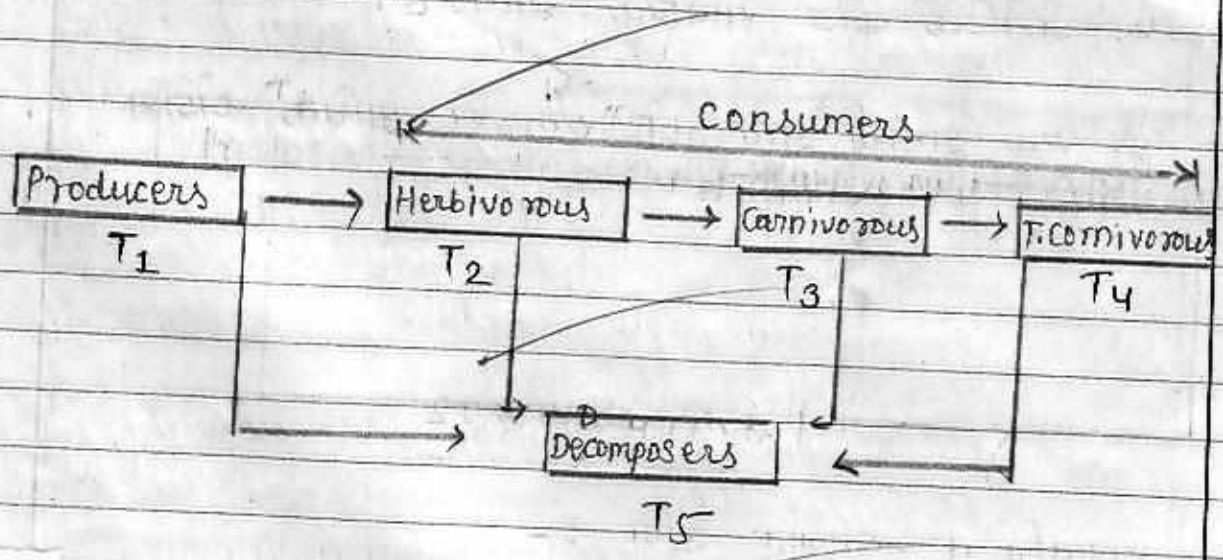 Consumers
Producers → Herbivorous → Carnivorous → T.Carnivorous
T1 T2 T3 T4
Decomposers
T5